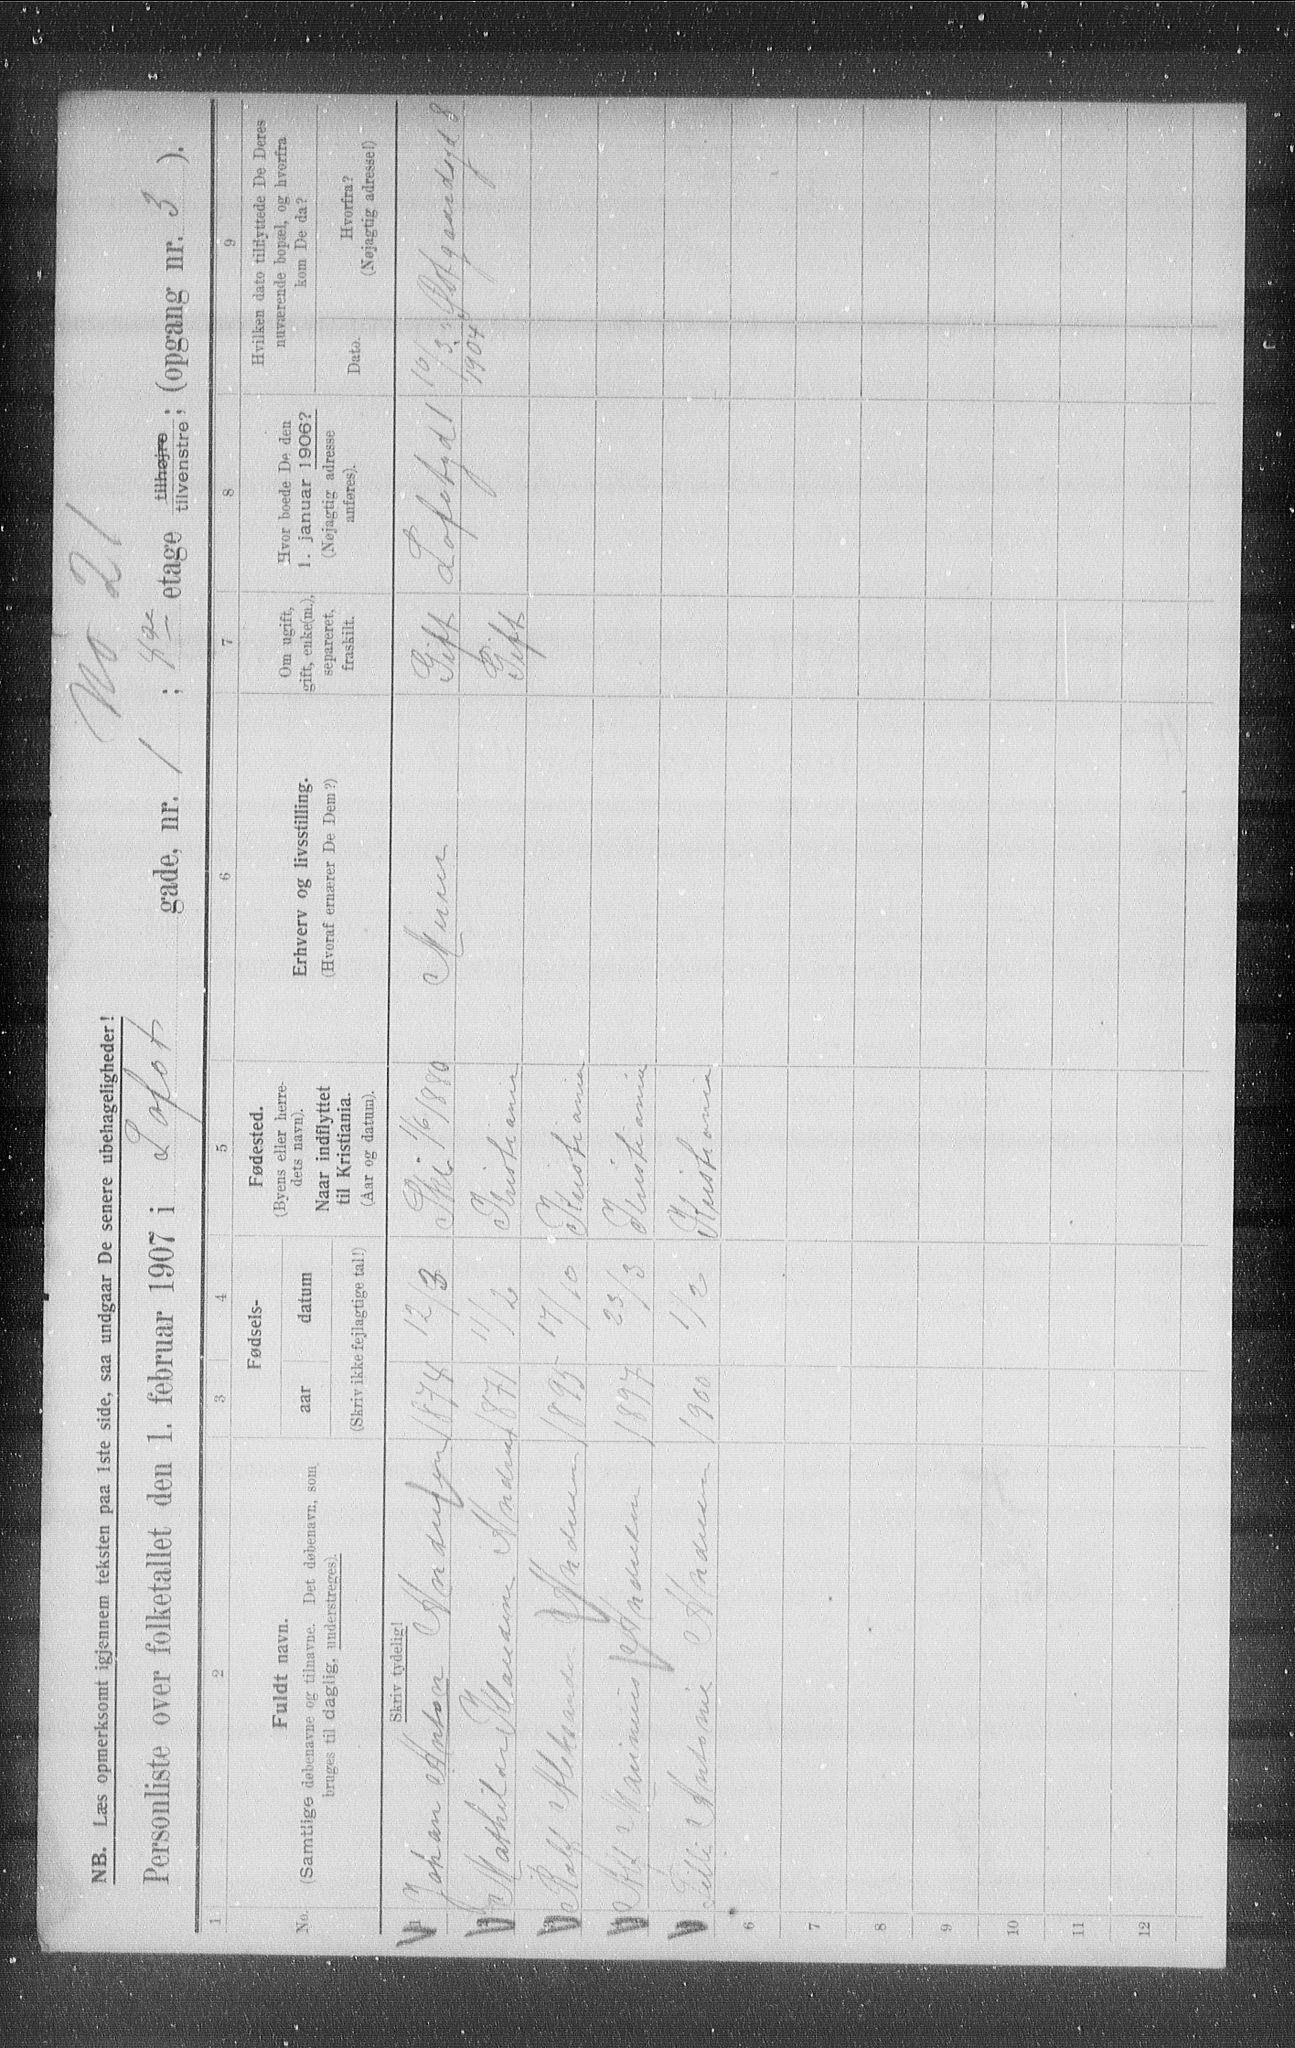 No 21
NB. Læs opmerksomt igjennem teksten paa 1ste side, saa undgaar De senere ubehageligheder!
Personliste over folketallet den 1. februar 1907 i Lofot gade, nr. 1 ; 4de etage tilhøjre tilvenstre; (opgang nr. 3 ).
1 2 3 4 5 6 7 8 9
No.
Fuldt navn.
(Samtlige døbenavne og tilnavne. Det døbenavn, som
bruges til daglig, understreges).
Fødsels-
aar datum
(Skriv ikke fejlagtige tal!)
Fødested.
(Byens eller herre-
dets navn).
Naar indflyttet
til Kristiania.
(Aar og datum).
Erhverv og livsstilling.
(Hvoraf ernærer De Dem?)
Om ugift,
gift, enke(m.),
separeret,
fraskilt.
Hvor boede De den
1. januar 1906?
(Nøjagtig adresse
anføres).
Hvilken dato tilflyttede De Deres
nuværende bopæl, og hvorfra
kom De da?
Dato.
Hvorfra?
(Nøjagtig adresse!)
Skriv tydelig!
1 Johan Anton Andersen 1874 12/3 Ski 1/6 1880 Murer Gift Lofotgd 1 16/3 1904
2 Mathilde Andersen 1871 11/2 Kristiania Gift
3 Rolf Aleksander Andersen 1895 17/10 Kristiania
4 Marinius Andersen 1897 23/3 Kristiania
5 Antonie Andersen 1900 1/2 Kristiania
6
7
8
9
10
11
12